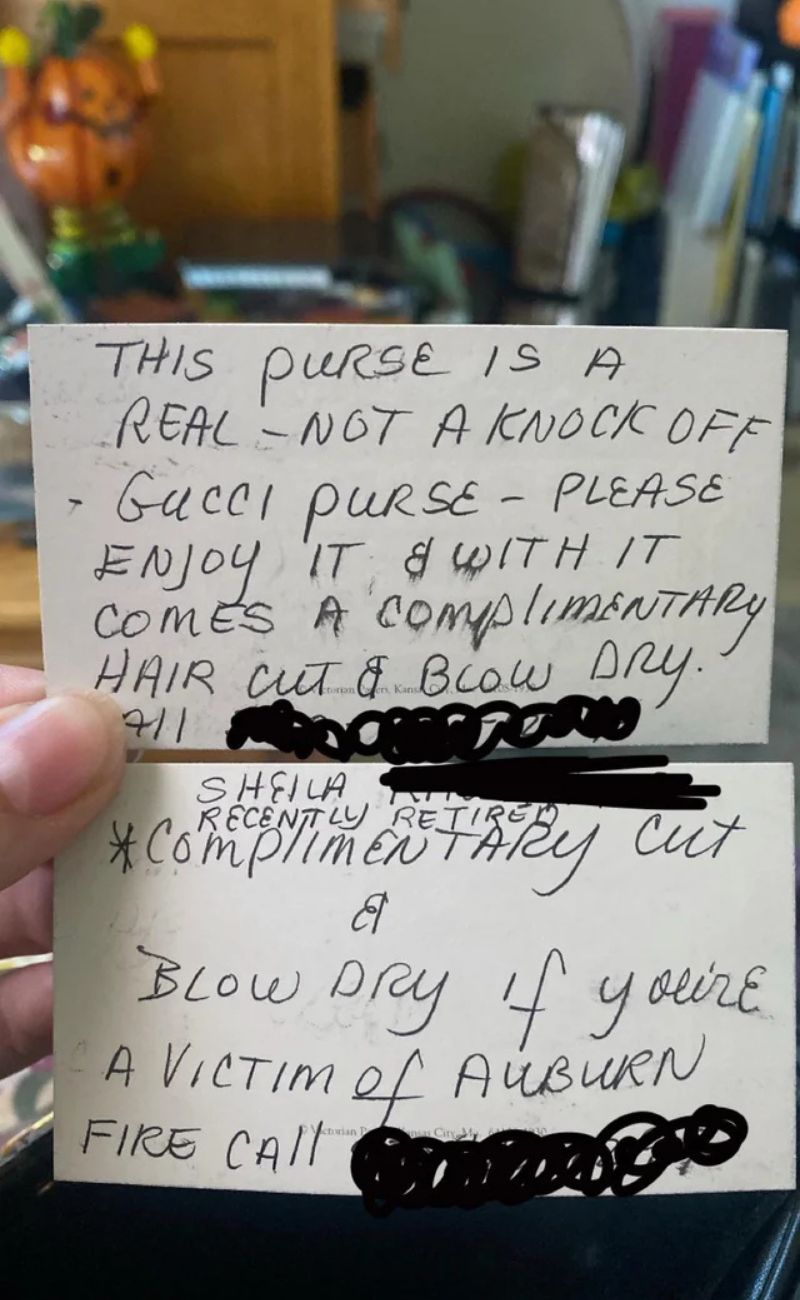 THIS PURSE IS A
REAL - NOT A KNOCK OFF
- GUCCI PURSE - PLEASE
ENJOY IT & WITH IT
COMES A COMPlIMENTARY
HAIR CUT & BLOW DRY.
All
SHEILA
RECENTLY RETIRED
*COMPlIMENTARY CUT
&
BLOW DRY If you're
A VICTIM of AUBURN
FIRE CAll